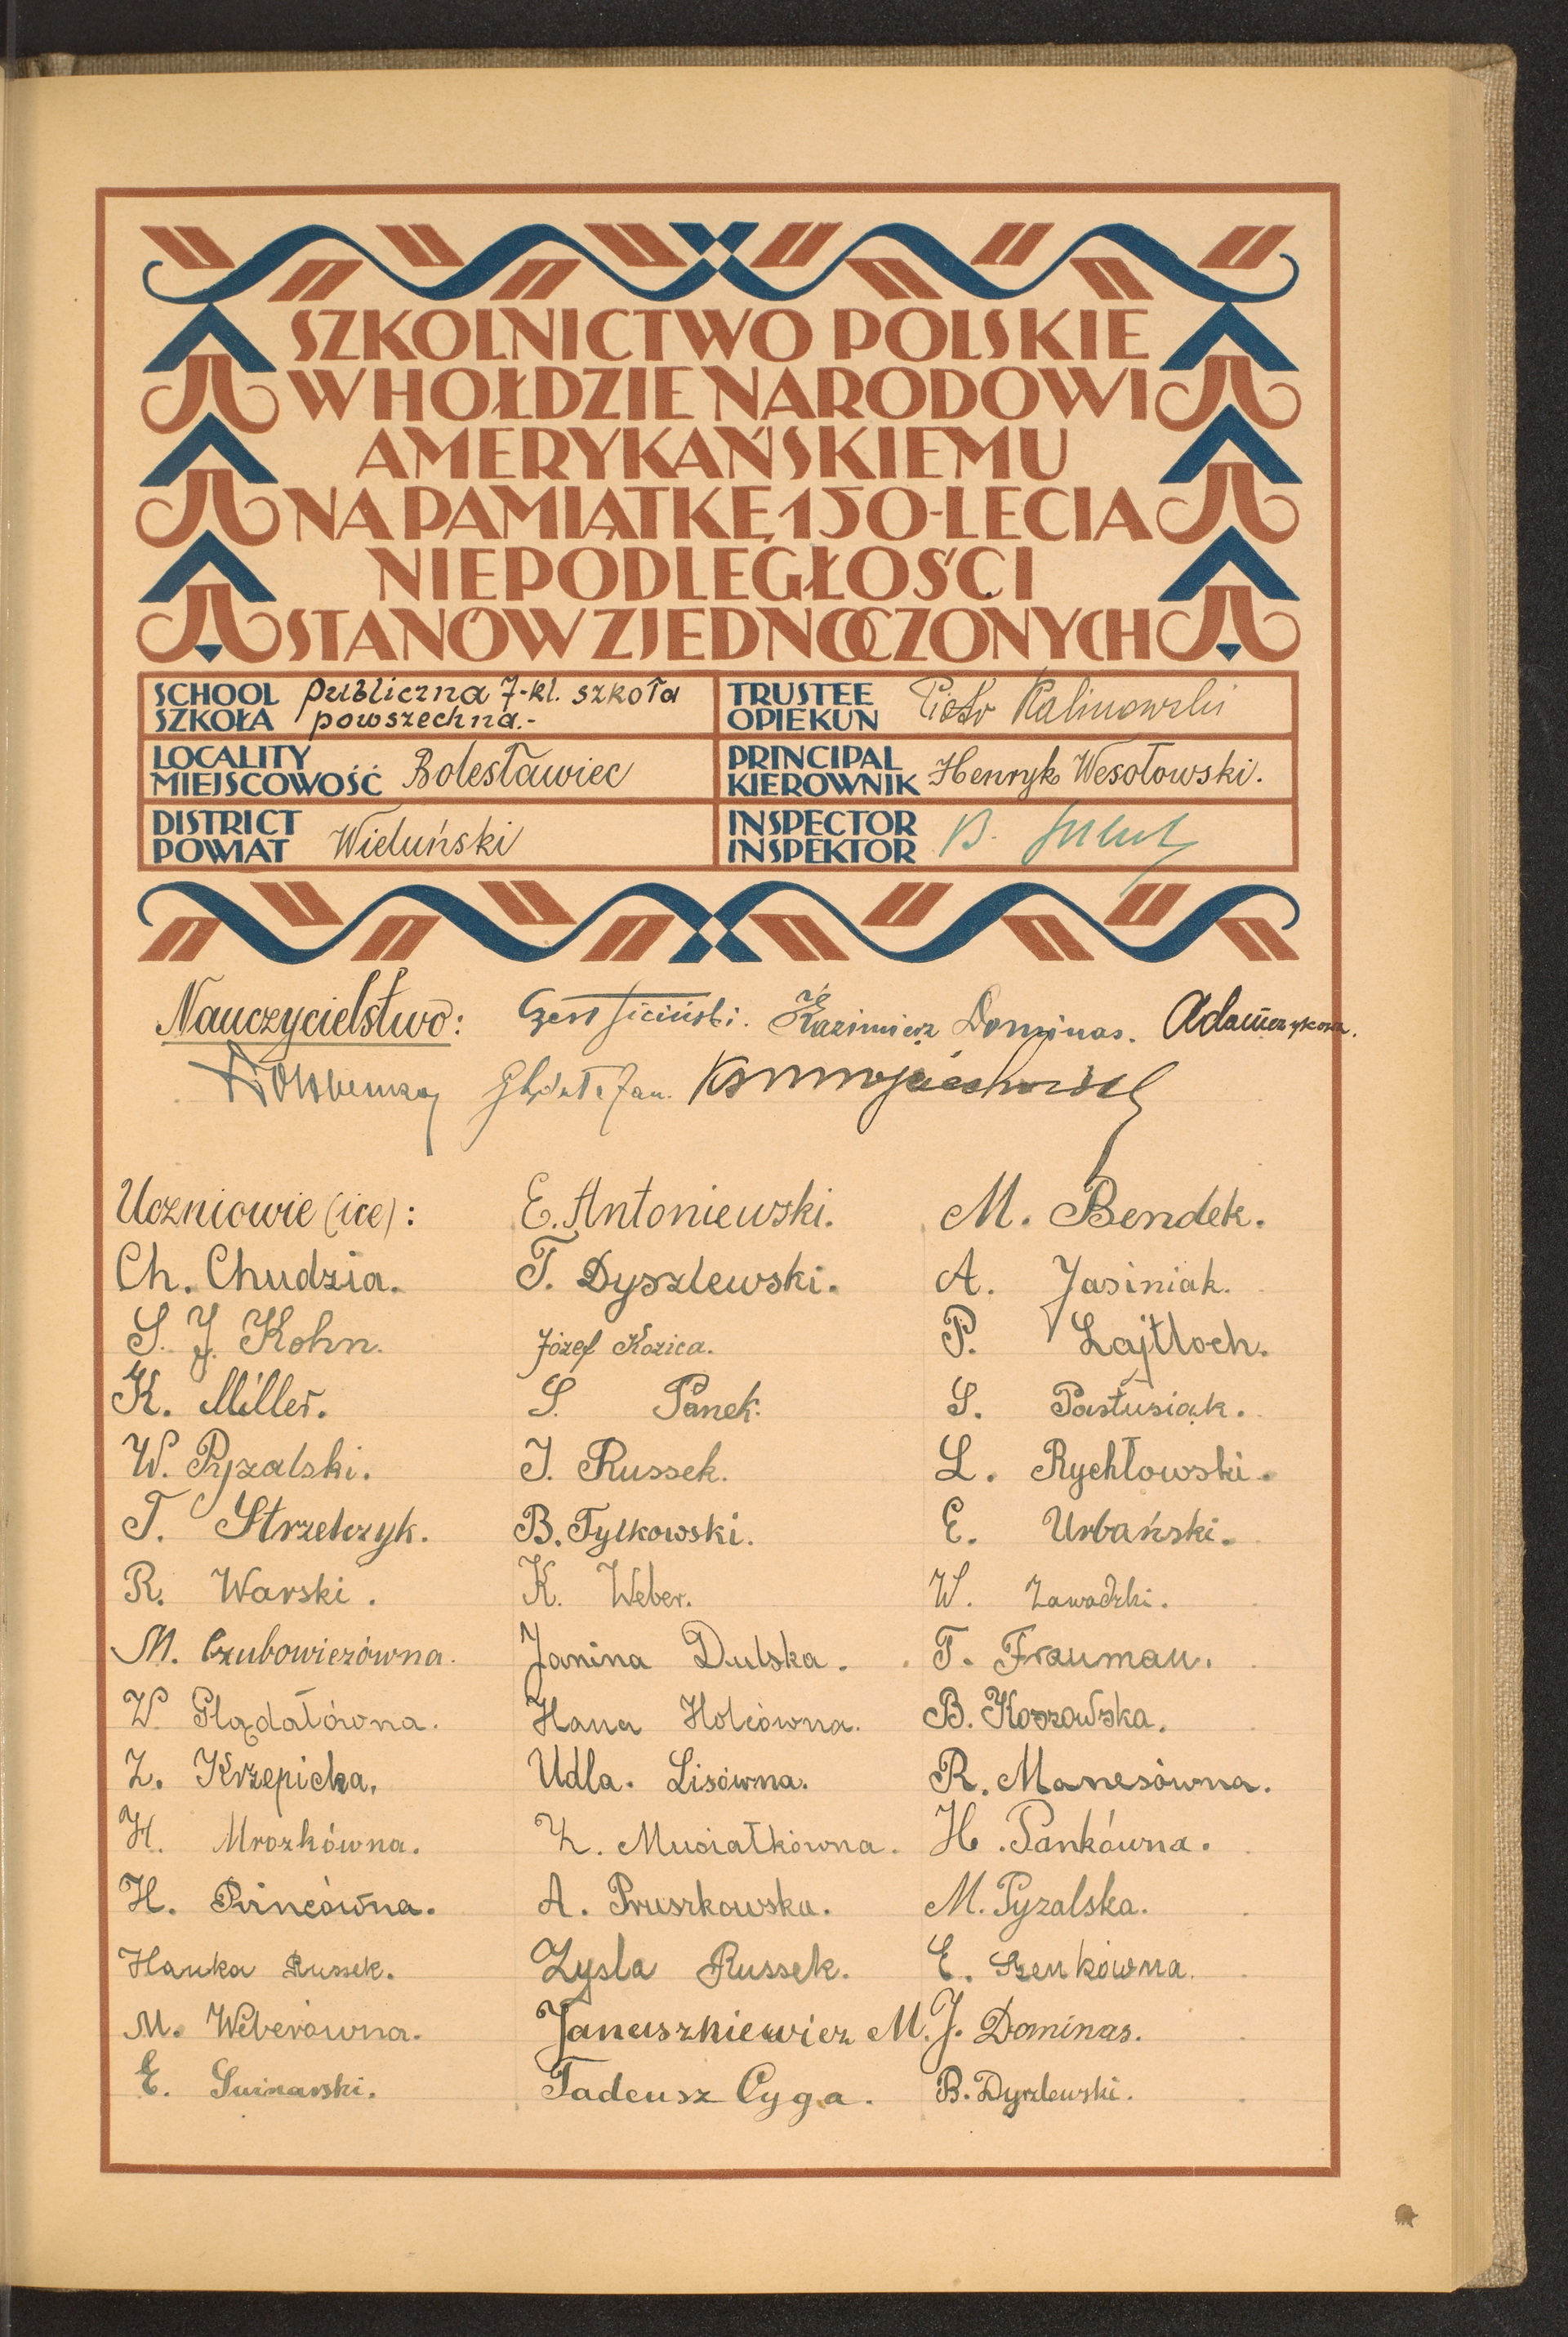 SZKOLNICTWO POLSKIE
W HOŁDZIE NARODOWI
AMERYKAŃSKIEMU
NA PAMIĄTKĘ 150-LECIA
NIEPODLEGŁOŚCI
STANÓW ZJEDNOCZONYCH
SCHOOL
SZKOŁA
publiczna 7-kl. szkoła
powszechna.-
TRUSTEE
OPIEKUN
Piotr Kalinowski
LOCALITY
MIEJSCOWOŚĆ
Bolesławiec
PRINCIPAL
KIEROWNIK
Henryk Wesołowski.
DISTRICT
POWIAT
Wieluński
INSPECTOR
INSPEKTOR
B.
Nauczycielstwo: Kazimierz Dominas. Adamczykowa.
Jan.
Uczniowie (ice): E. Antoniewski. M. Bendek.
Ch. Chudzia. T. Dyszlewski. A. Jasiniak.
S. J. Kohn. Józef Kozica. P. Lajtloch.
K. Miller. S. Panek. S. Pastusiak.
W. Pyzalski. J. Russek. L. Rychłowski.
T. Strzelczyk. B. Tylkowski. E. Urbański.
R. Warski. K. Weber. W. Zawadzki.
M. Czubowiczówna. Janina Dulska. T. Frauman.
W. Glądałówna. Hana Holcówna. B. Kossowska.
Z. Krzepicka. Udla. Lisówna. R. Manesówna.
H. Mrozkówna. Z. Musiałkówna. H. Pankówna.
H. Pincówna. A. Pruszkowska. M. Pyzalska.
Hanka Russek. Zysla Russek. E. Szenkówna.
M. Weberówna. Januszkiewicz M. J. Dominas.
E. Swinarski. Tadeusz Cyga. B. Dyszlewski.